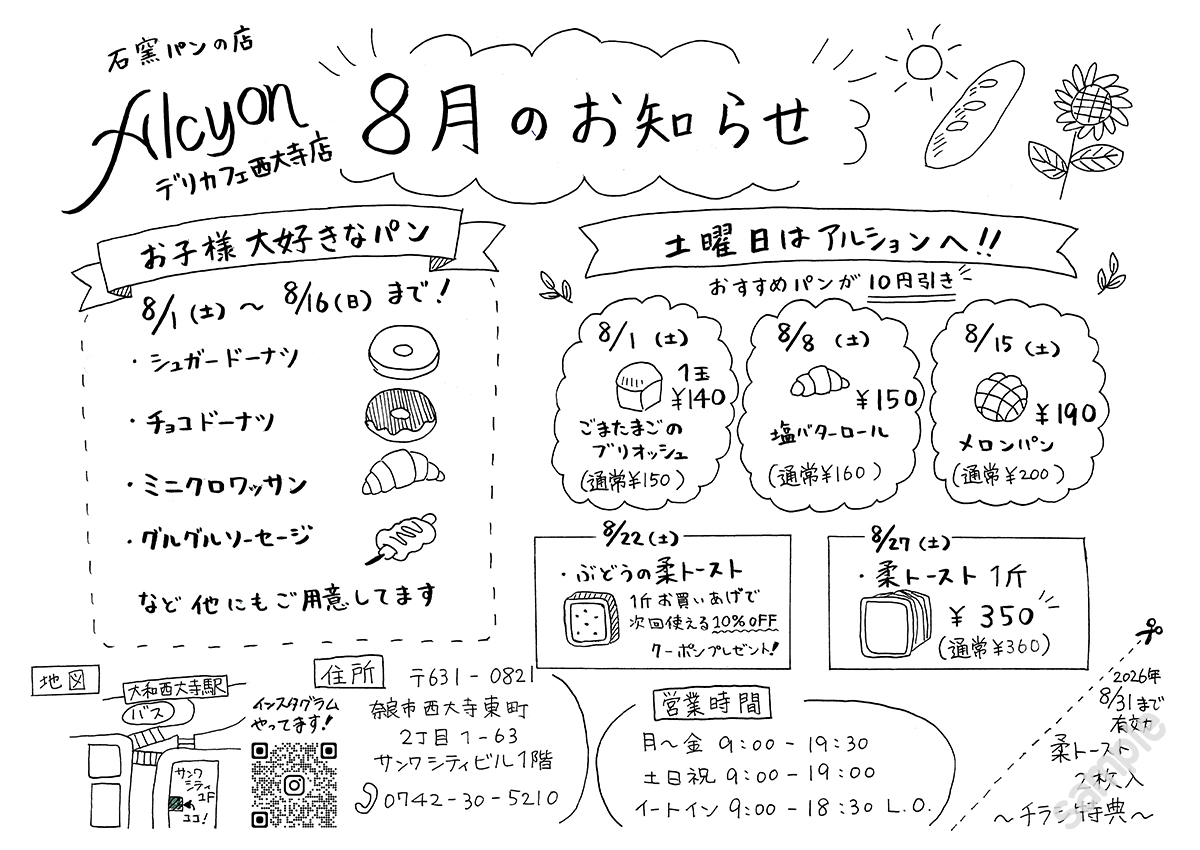 石窯パンの店
Alcyon
デリカフェ西大寺店
8月のお知らせ
お子様大好きなパン
8/1(土)～8/16(日)まで!
・シュガードーナツ
・チョコドーナツ
・ミニクロワッサン
・グルグルソーセージ
など他にもご用意してます
土曜日はアルションへ!!
おすすめパンが10円引き
8/1(土)
1玉
¥140
ごまたまごの
ブリオッシュ
(通常¥150)
8/8(土)
¥150
塩バターロール
(通常¥160)
8/15(土)
¥190
メロンパン
(通常¥200)
8/22(土)
・ぶどうの柔トースト
1斤お買いあげで
次回使える10%OFF
クーポンプレゼント!
8/27(土)
・柔トースト1斤
¥350
(通常¥360)
地図
大和西大寺駅
バス
サンワ
シティ
1F
ココ!
インスタグラム
やってます!
住所
〒631-0821
奈良市西大寺東町
2丁目1-63
サンワシティビル1階
0742-30-5210
営業時間
月～金 9:00-19:30
土日祝 9:00-19:00
イートイン 9:00-18:30 L.O.
2026年
8/31まで
有効
柔トースト
2枚入
～チラシ特典～
sample